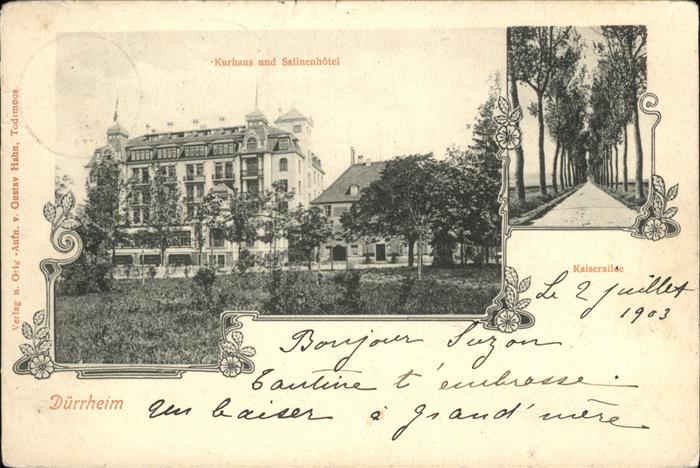 Kurhaus und Salinenhôtel
Verlag u. Orig.-Aufn. v. Gustav Hahn, Todtmoos
Kaiserallee
Le 2 juillet
1903
Bonjour Suzon
Tantine t'embrasse
un baiser à grand'mère
Dürrheim